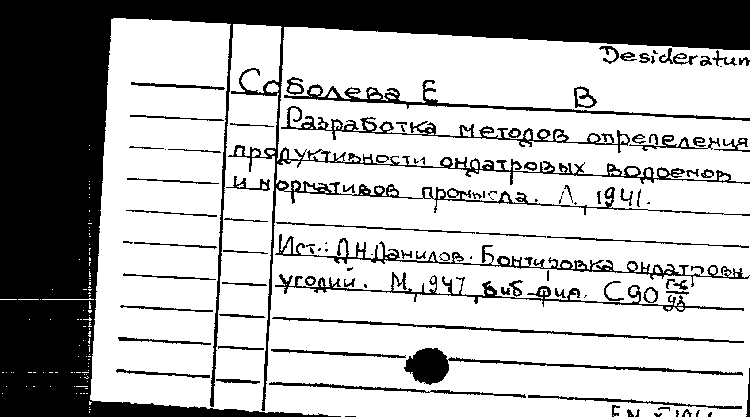 Desideratum
Соболева, Е В
Разработка методов определения
продуктивности ондатровых водоемов
и нормативов промысла. Л., 1941.
Ист.: Д.Н.Данилов. Бонтировка ондатровы
угодий. М., 1947, библ-фия. С 90